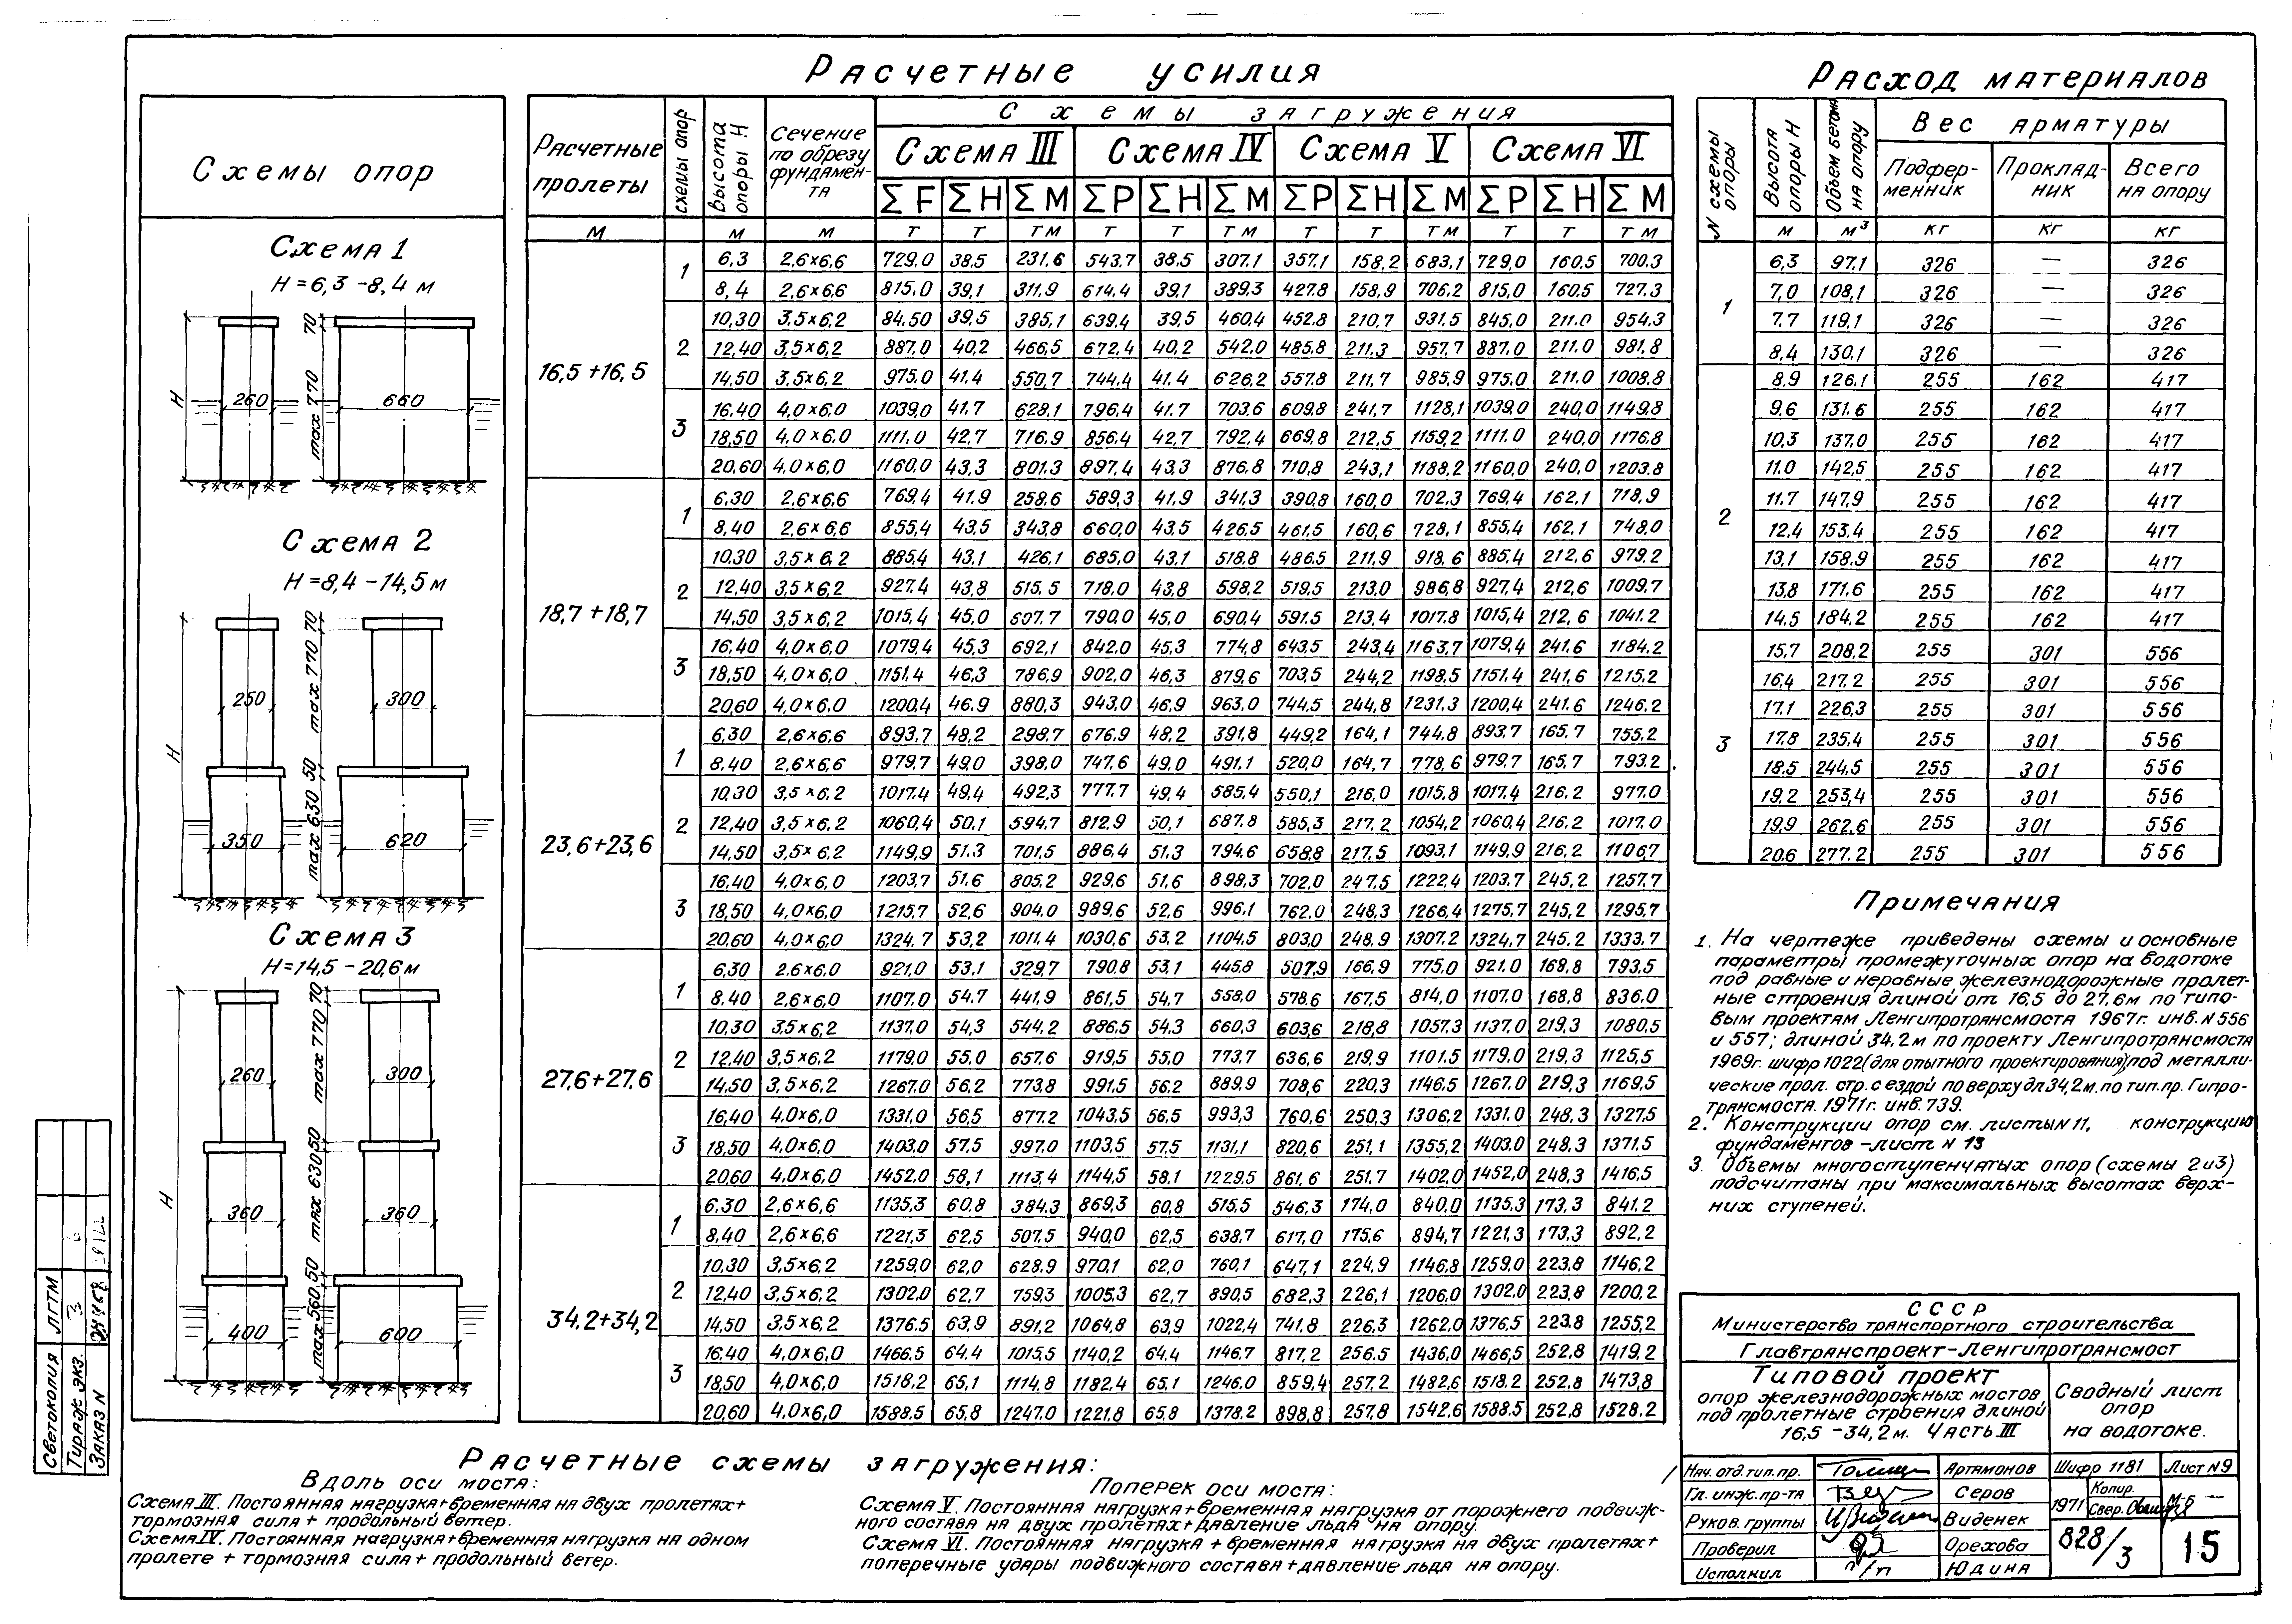 Расчетные усилия
Расход материалов
Схемы опор
Схема 1
H=6,3-8,4 м
70
max 770
H
260
660
Схема 2
H=8,4-14,5м
70
max 770
50
max 630
H
250
300
350
620
Схема 3
H=14,5-20,6м
70
max 770
50
max 630
50
max 560
H
260
300
360
360
400
600
Расчетные пролеты
схемы опор
Высота опоры H
Сечение по обрезу фундамента
Схемы загружения
Схема III Схема IV Схема V Схема VI
ΣF ΣH ΣM ΣP ΣH ΣM ΣP ΣH ΣM ΣP ΣH ΣM
м м м т т тм т т тм т т тм т т тм
16,5+16,5
1
6,3 2,6×6,6 729,0 38,5 231,6 543,7 38,5 307,1 357,1 158,2 683,1 729,0 160,5 700,3
8,4 2,6×6,6 815,0 39,1 311,9 614,4 39,1 389,3 427,8 158,9 706,2 815,0 160,5 727,3
2
10,30 3,5×6,2 84,50 39,5 385,1 639,4 39,5 460,4 452,8 210,7 931,5 845,0 211,0 954,3
12,40 3,5×6,2 887,0 40,2 466,5 672,4 40,2 542,0 485,8 211,3 957,7 887,0 211,0 981,8
14,50 3,5×6,2 975,0 41,4 550,7 744,4 41,4 626,2 557,8 211,7 985,9 975,0 211,0 1008,8
3
16,40 4,0×6,0 1039,0 41,7 628,1 796,4 41,7 703,6 609,8 241,7 1128,1 1039,0 240,0 1149,8
18,50 4,0×6,0 1111,0 42,7 716,9 856,4 42,7 792,4 669,8 212,5 1159,2 1111,0 240,0 1176,8
20,60 4,0×6,0 1160,0 43,3 801,3 897,4 43,3 876,8 710,8 243,1 1188,2 1160,0 240,0 1203,8
18,7+18,7
1
6,30 2,6×6,6 769,4 41,9 258,6 589,3 41,9 341,3 390,8 160,0 702,3 769,4 162,1 718,9
8,40 2,6×6,6 855,4 43,5 343,8 660,0 43,5 426,5 461,5 160,6 728,1 855,4 162,1 748,0
2
10,30 3,5×6,2 885,4 43,1 426,1 685,0 43,1 518,8 486,5 211,9 918,6 885,4 212,6 979,2
12,40 3,5×6,2 927,4 43,8 515,5 718,0 43,8 598,2 519,5 213,0 986,8 927,4 212,6 1009,7
14,50 3,5×6,2 1015,4 45,0 607,7 790,0 45,0 690,4 591,5 213,4 1017,8 1015,4 212,6 1041,2
3
16,40 4,0×6,0 1079,4 45,3 692,1 842,0 45,3 774,8 643,5 243,4 1163,7 1079,4 241,6 1184,2
18,50 4,0×6,0 1151,4 46,3 786,9 902,0 46,3 879,6 703,5 244,2 1198,5 1151,4 241,6 1215,2
20,60 4,0×6,0 1200,4 46,9 880,3 943,0 46,9 963,0 744,5 244,8 1231,3 1200,4 241,6 1246,2
23,6+23,6
1
6,30 2,6×6,6 893,7 48,2 298,7 676,9 48,2 391,8 449,2 164,1 744,8 893,7 165,7 755,2
8,40 2,6×6,6 979,7 49,0 398,0 747,6 49,0 491,1 520,0 164,7 778,6 979,7 165,7 793,2
2
10,30 3,5×6,2 1017,4 49,4 492,3 777,7 49,4 585,4 550,1 216,0 1015,8 1017,4 216,2 977,0
12,40 3,5×6,2 1060,4 50,1 594,7 812,9 50,1 687,8 585,3 217,2 1054,2 1060,4 216,2 1017,0
14,50 3,5×6,2 1149,9 51,3 701,5 886,4 51,3 794,6 658,8 217,5 1093,1 1149,9 216,2 1106,7
3
16,40 4,0×6,0 1203,7 51,6 805,2 929,6 51,6 898,3 702,0 247,5 1222,4 1203,7 245,2 1257,7
18,50 4,0×6,0 1215,7 52,6 904,0 989,6 52,6 996,1 762,0 248,3 1266,4 1275,7 245,2 1295,7
20,60 4,0×6,0 1324,7 53,2 1011,4 1030,6 53,2 1104,5 803,0 248,9 1307,2 1324,7 245,2 1333,7
27,6+27,6
1
6,30 2,6×6,0 921,0 53,1 329,7 790,8 53,1 445,8 507,9 166,9 775,0 921,0 168,8 793,5
8,40 2,6×6,0 1107,0 54,7 441,9 861,5 54,7 558,0 578,6 167,5 814,0 1107,0 168,8 836,0
2
10,30 3,5×6,2 1137,0 54,3 544,2 886,5 54,3 660,3 603,6 218,8 1057,3 1137,0 219,3 1080,5
12,40 3,5×6,2 1179,0 55,0 657,6 919,5 55,0 773,7 636,6 219,9 1101,5 1179,0 219,3 1125,5
14,50 3,5×6,2 1267,0 56,2 773,8 991,5 56,2 889,9 708,6 220,3 1146,5 1267,0 219,3 1169,5
3
16,40 4,0×6,0 1331,0 56,5 877,2 1043,5 56,5 993,3 760,6 250,3 1306,2 1331,0 248,3 1327,5
18,50 4,0×6,0 1403,0 57,5 997,0 1103,5 57,5 1131,1 820,6 251,1 1355,2 1403,0 248,3 1371,5
20,60 4,0×6,0 1452,0 58,1 1113,4 1144,5 58,1 1229,5 861,6 251,7 1402,0 1452,0 248,3 1416,5
34,2+34,2
1
6,30 2,6×6,6 1135,3 60,8 384,3 869,3 60,8 515,5 546,3 174,0 840,0 1135,3 173,3 841,2
8,40 2,6×6,6 1221,3 62,5 507,5 940,0 62,5 638,7 617,0 175,6 894,7 1221,3 173,3 892,2
2
10,30 3,5×6,2 1259,0 62,0 628,9 970,1 62,0 760,1 647,1 224,9 1146,8 1259,0 223,8 1146,2
12,40 3,5×6,2 1302,0 62,7 759,3 1005,3 62,7 890,5 682,3 226,1 1206,0 1302,0 223,8 1200,2
14,50 3,5×6,2 1376,5 63,9 891,2 1064,8 63,9 1022,4 741,8 226,3 1262,0 1376,5 223,8 1255,2
3
16,40 4,0×6,0 1466,5 64,4 1015,5 1140,2 64,4 1146,7 817,2 256,5 1436,0 1466,5 252,8 1419,2
18,50 4,0×6,0 1518,2 65,1 1114,8 1182,4 65,1 1246,0 859,4 257,2 1482,6 1518,2 252,8 1473,8
20,60 4,0×6,0 1588,5 65,8 1247,0 1221,8 65,8 1378,2 898,8 257,8 1542,6 1588,5 252,8 1528,2
N схемы опоры
Высота опоры H
Объем бетона на опору
Вес арматуры
Подферменник Прокладник Всего на опору
м м³ кг кг кг
1
6,3 97,1 326 — 326
7,0 108,1 326 — 326
7,7 119,1 326 — 326
8,4 130,1 326 — 326
2
8,9 126,1 255 162 417
9,6 131,6 255 162 417
10,3 137,0 255 162 417
11,0 142,5 255 162 417
11,7 147,9 255 162 417
12,4 153,4 255 162 417
13,1 158,9 255 162 417
13,8 171,6 255 162 417
14,5 184,2 255 162 417
3
15,7 208,2 255 301 556
16,4 217,2 255 301 556
17,1 226,3 255 301 556
17,8 235,4 255 301 556
18,5 244,5 255 301 556
19,2 253,4 255 301 556
19,9 262,6 255 301 556
20,6 277,2 255 301 556
Примечания
1. На чертеже приведены схемы и основные
параметры промежуточных опор на водотоке
под равные и неравные железнодорожные пролет-
ные строения длиной от 16,5 до 27,6м по типо-
вым проектам Ленгипротрансмоста 1967г. инв. N 556
и 557; длиной 34,2м по проекту Ленгипротрансмоста
1969г. шифр 1022 (для опытного проектирования), под металли-
ческие прол. стр. с ездой по верху дл 34,2м. по тип. пр. Гипро-
трансмоста. 1971г. инв. 739.
2. Конструкции опор см. листы N 11, конструкцию
фундаментов - лист N 13
3. Объемы многоступенчатых опор (схемы 2и3)
подсчитаны при максимальных высотах верх-
них ступеней.
Расчетные схемы загружения:
Вдоль оси моста:
Схема III. Постоянная нагрузка+временная на двух пролетах+
тормозная сила + продольный ветер.
Схема IV. Постоянная нагрузка+временная нагрузка на одном
пролете + тормозная сила + продольный ветер.
Поперек оси моста:
Схема V. Постоянная нагрузка+временная нагрузка от порожнего подвиж-
ного состава на двух пролетах+давление льда на опору.
Схема VI. Постоянная нагрузка + временная нагрузка на двух пролетах+
поперечные удары подвижного состава+давление льда на опору.
СССР
Министерство транспортного строительства
Главтранспроект-Ленгипротрансмост
Типовой проект
опор железнодорожных мостов
под пролетные строения длиной
16,5-34,2м. Часть III
Сводный лист
опор
на водотоке.
Нач. отд. тип. пр. Артамонов
Гл. инж. пр-та Серов
Руков. группы Виденек
Проверил Орехова
Исполнил Юдина
Шифр 1181 Лист N 9
1971 Копир.
Свер.
М-б —
828/3
15
Светокопия ЛГТМ
Тираж экз. 3
Заказ N